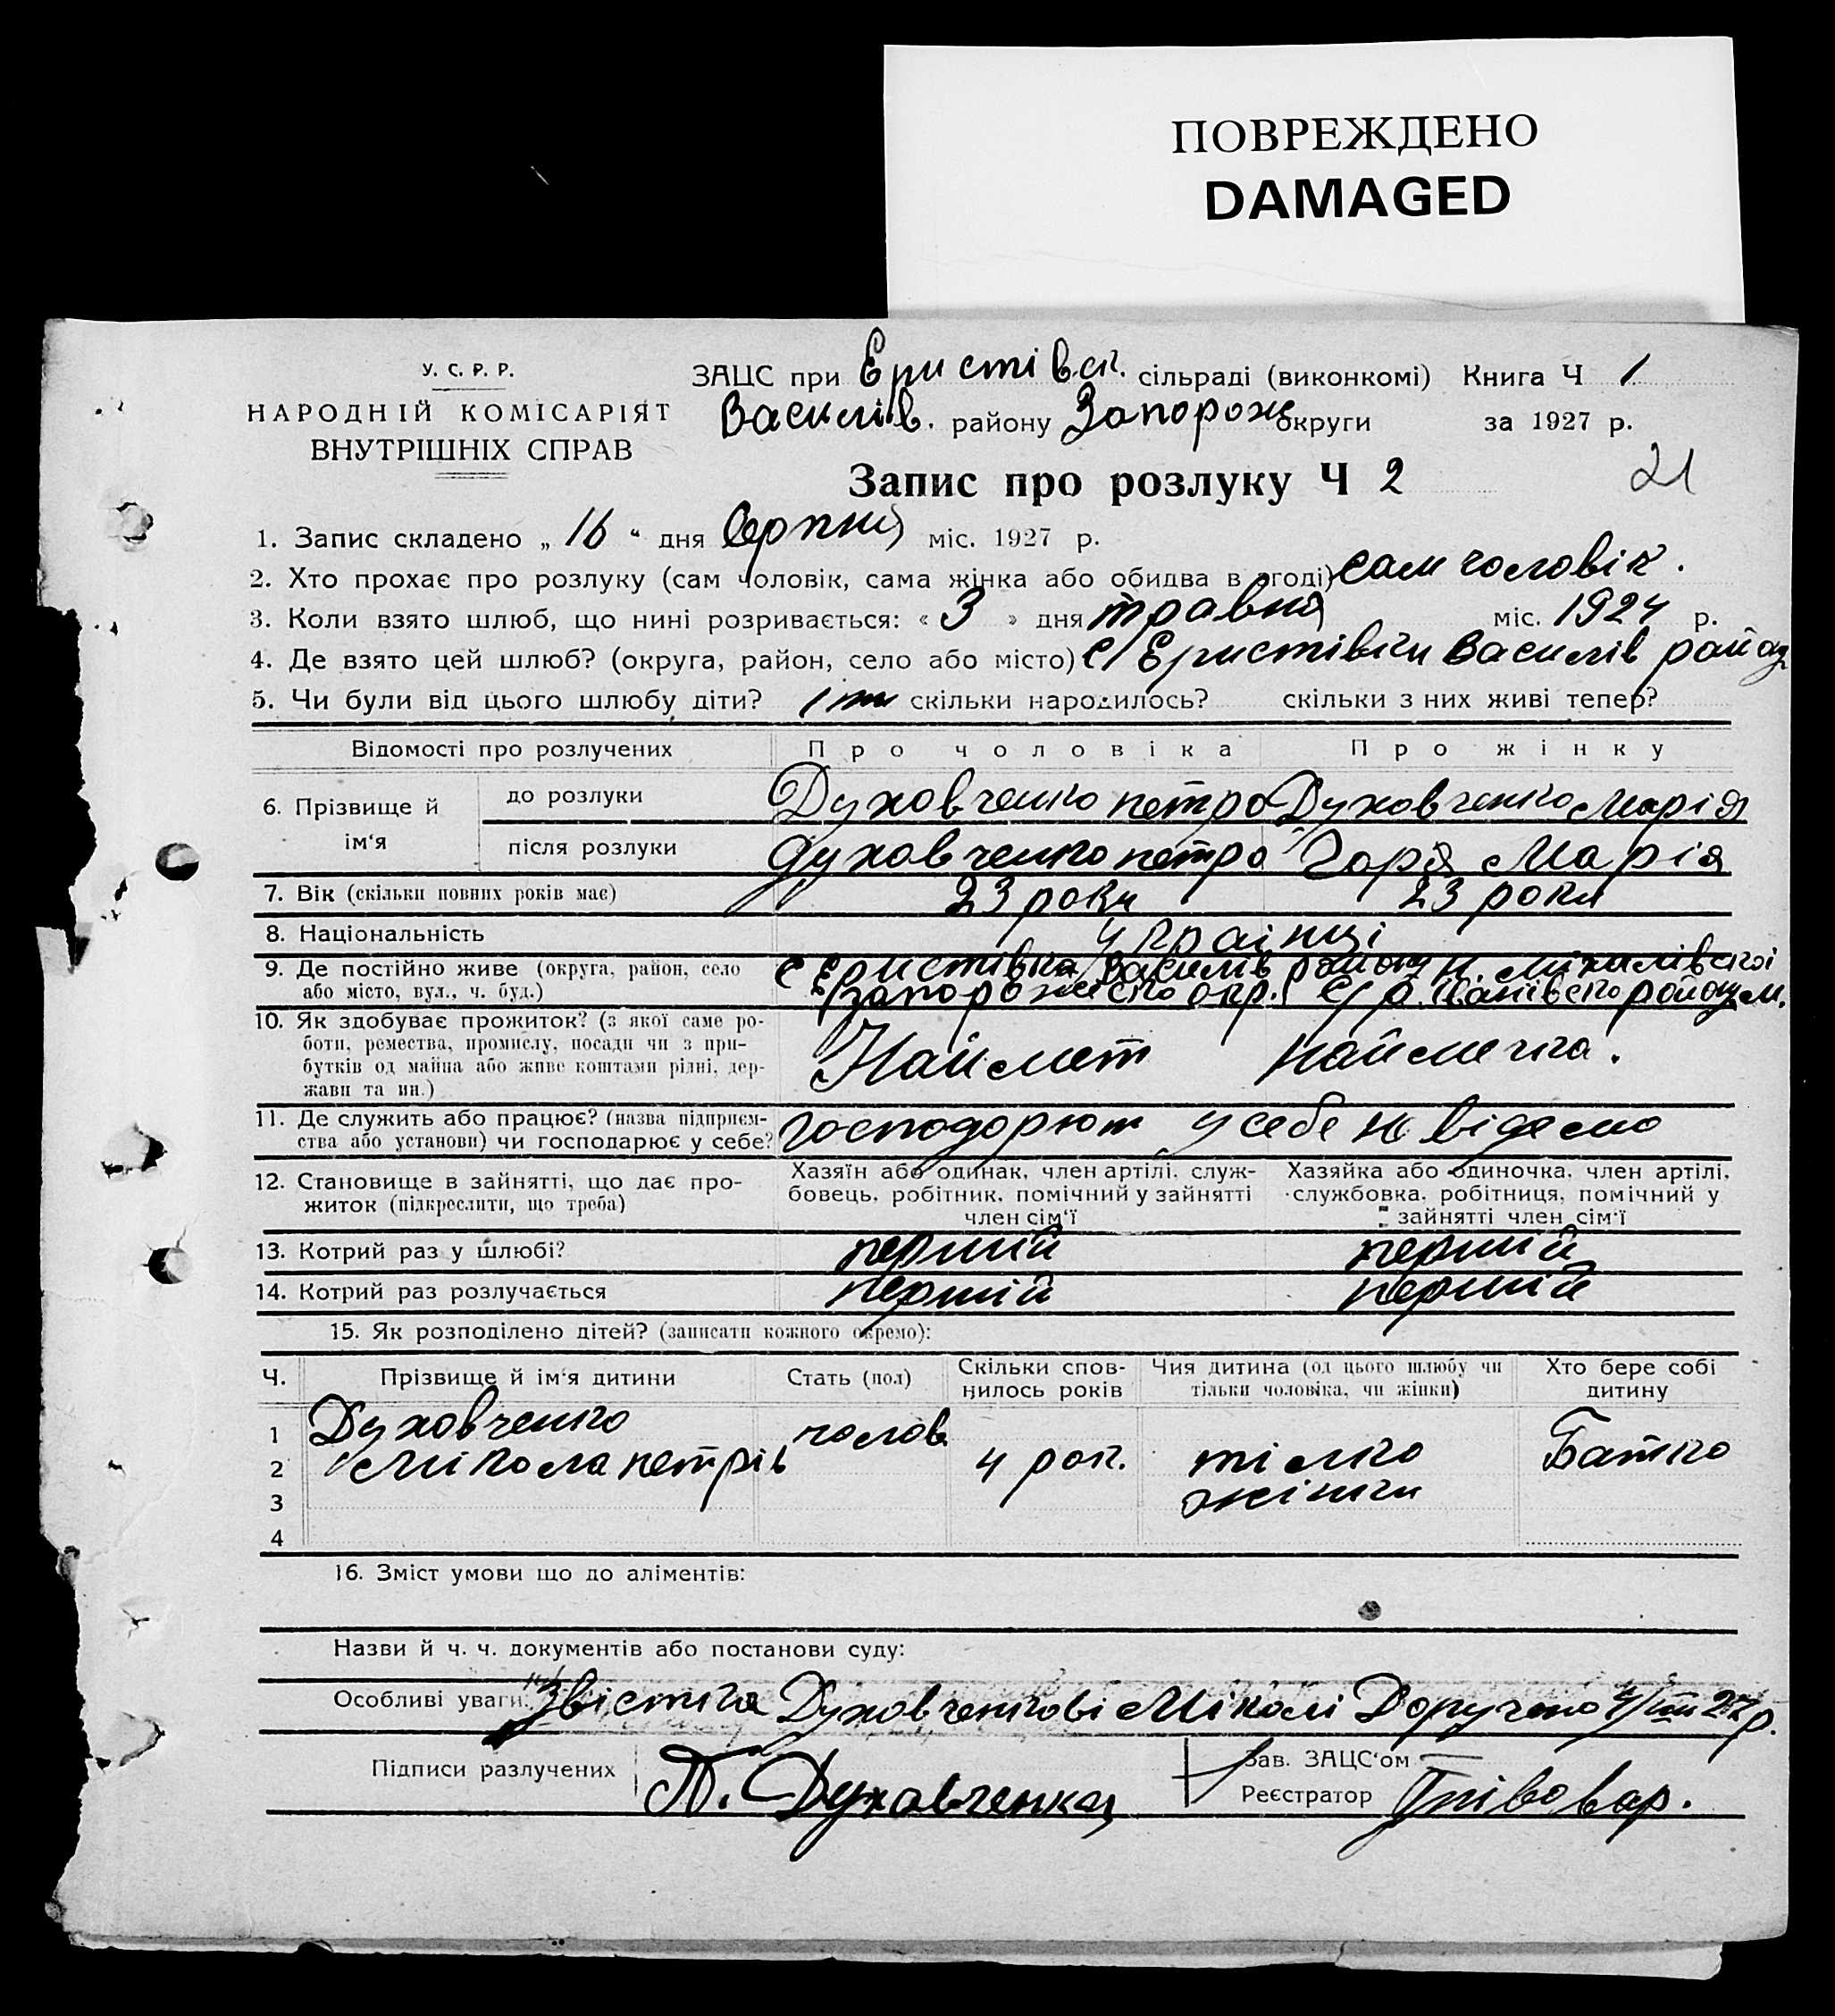 ПОВРЕЖДЕНО
DAMAGED
У. С. Р. Р.
НАРОДНІЙ КОМІСАРІЯТ
ВНУТРІШНІХ СПРАВ
ЗАЦС при Еристівск. сільраді (виконкомі) Книга Ч 1
Василів. району Запорож округи за 1927 р.
Запис про розлуку Ч 2
21
1. Запис складено „ 16 “ дня Серпня міс. 1927 р.
2. Хто прохає про розлуку (сам чоловік, сама жінка або обидва в згоді) сам чоловік.
3. Коли взято шлюб, що нині розривається: « 3 » дня травня міс. 1924 р.
4. Де взято цей шлюб? (округа, район, село або місто) с/ Еристівки Василів району
5. Чи були від цього шлюбу діти? скільки народилось? скільки з них живі тепер?
Відомості про розлучених Про чоловіка Про жінку
6. Прізвище й ім‘я
до розлуки Духовченко петро Духовченко Марія
після розлуки духовченко петро Горя Марія
7. Вік (скільки повних років має) 23 роки 23 роки
8. Національність українці
9. Де постійно живе (округа, район, село або місто, вул., ч. буд.)
с Еристівка Василів району
запорожского окр.
10. Як здобуває прожиток? (з якої саме роботи, ремества, промислу, посади чи з прибутків од майна або живе коштами рідні, держави та ин.) Наймет наймечка.
11. Де служить або працює? (назва підприємства або установи) чи господарює у себе? господорют у себе не відемо
12. Становище в зайнятті, що дає прожиток (підкреслити, що треба)
Хазяїн або одинак, член артілі, службовець, робітник, помічний у зайнятті член сім‘ї
Хазяйка або одиночка, член артілі, службовка, робітниця, помічний у зайнятті член сім‘ї
13. Котрий раз у шлюбі? перший перший
14. Котрий раз розлучається перший перший
15. Як розподілено дітей? (записати кожного окремо):
Ч. Прізвище й ім‘я дитини Стать (пол) Скільки сповнилось років Чия дитина (од цього шлюбу чи тільки чоловіка, чи жінки) Хто бере собі дитину
1 Духовченко чолов
2 Микола петрів 4 рок. тілко Батко
3 жінки
4
16. Зміст умови що до аліментів:
Назви й ч. ч. документів або постанови суду:
Особливі уваги: Звістка Духовченкові Міколі Доручено
Підписи разлучених П. Духовченка
Зав. ЗАЦС‘ом
Реєстратор Півовар.